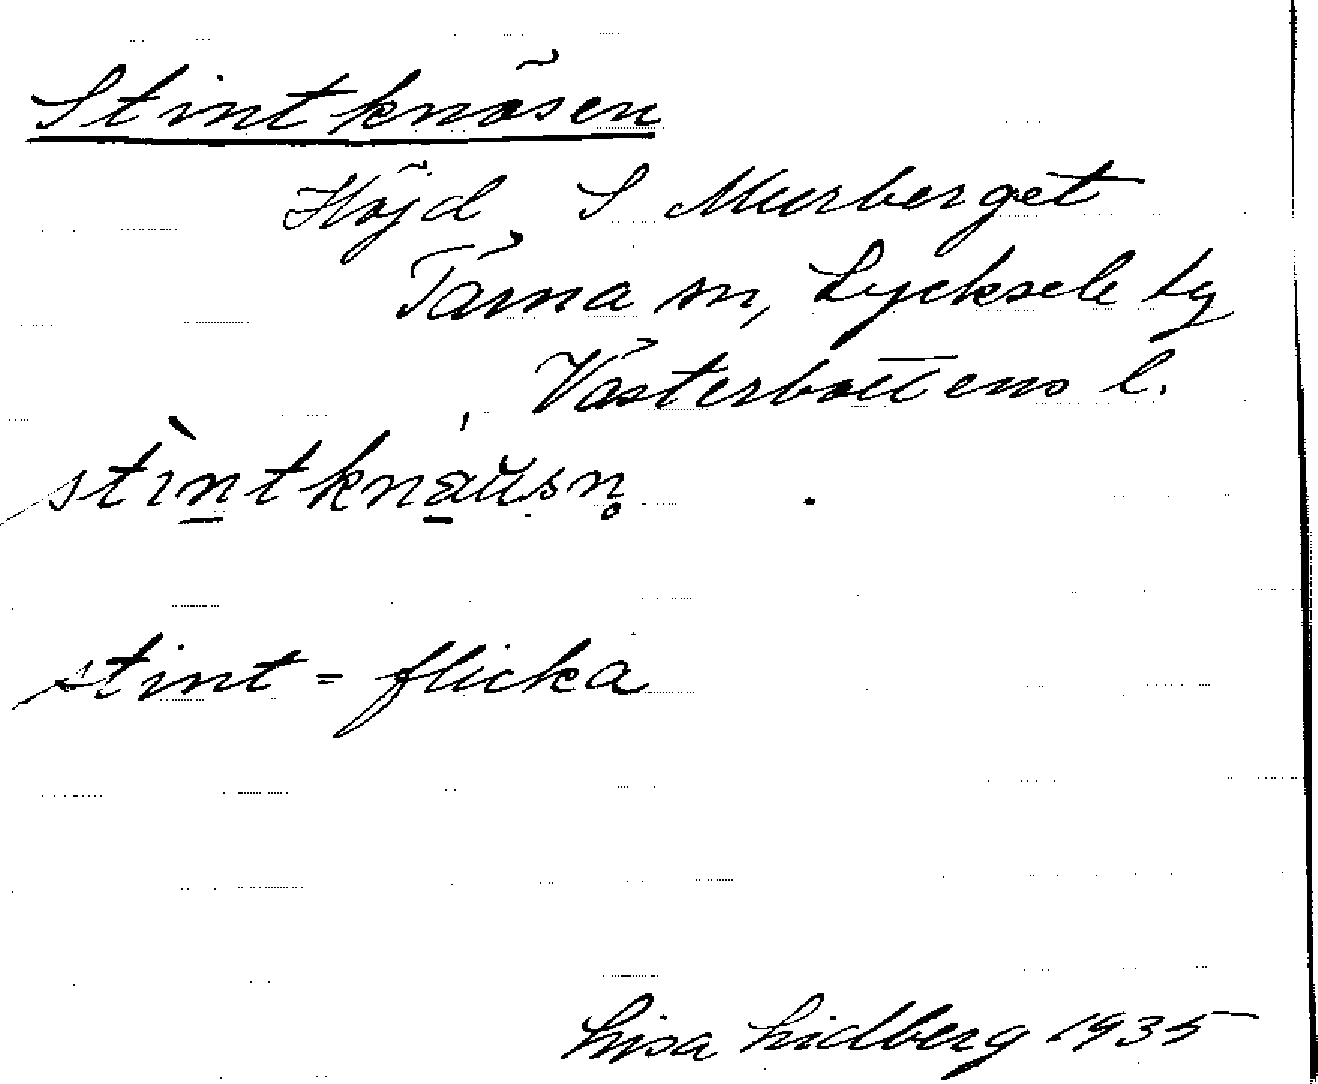 Stintknösen
Höjd S Murberget
Tärna sn, Lycksele lg
Västerbottens l.
stìntknàu̯sn̥
stint = flicka
Lisa Lidberg 1935